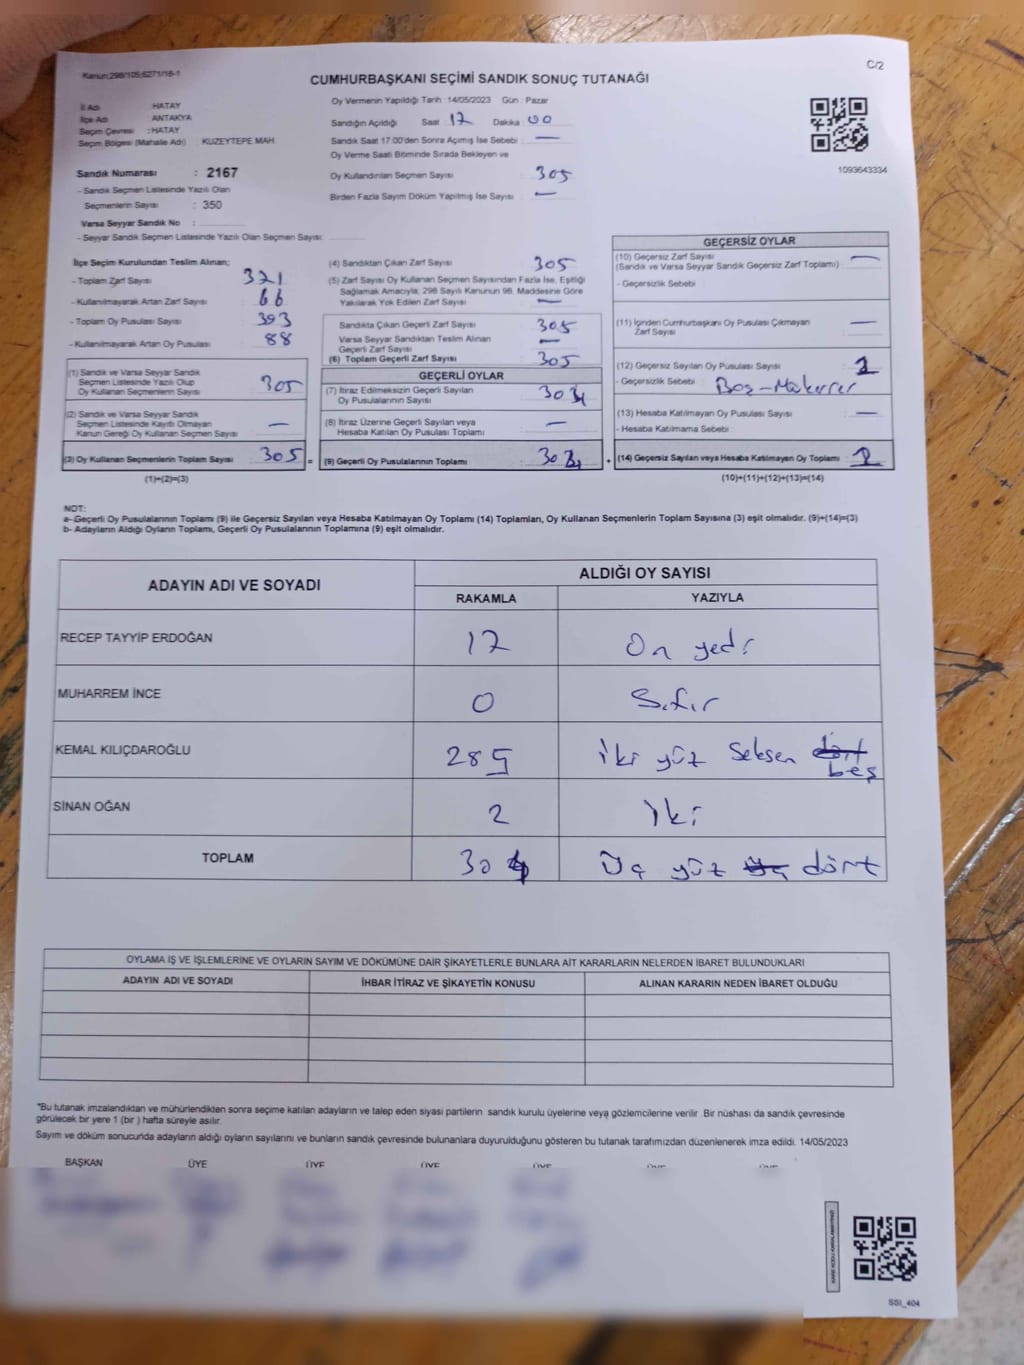 Kanun;298/105;6271/16-1
C/2
CUMHURBAŞKANI SEÇİMİ SANDIK SONUÇ TUTANAĞI
İl Adı : HATAY
İlçe Adı ANTAKYA
Seçim Çevresi : HATAY
Seçim Bölgesi (Mahalle Adı) KUZEYTEPE MAH.
Sandık Numarası : 2167
- Sandık Seçmen Listesinde Yazılı Olan
Seçmenlerin Sayısı : 350
Varsa Seyyar Sandık No :
- Seyyar Sandık Seçmen Listesinde Yazılı Olan Seçmen Sayısı:
Oy Vermenin Yapıldığı Tarih : 14/05/2023 Gün : Pazar
Sandığın Açıldığı Saat 17 Dakika 00
Sandık Saat 17.00'den Sonra Açımış İse Sebebi : —
Oy Verme Saati Bitiminde Sırada Bekleyen ve
Oy Kullandırılan Seçmen Sayısı : 305
Birden Fazla Sayım Döküm Yapılmış İse Sayısı : —
1093643334
İlçe Seçim Kurulundan Teslim Alınan;
- Toplam Zarf Sayısı : 321
- Kullanılmayarak Artan Zarf Sayısı : 66
- Toplam Oy Pusulası Sayısı : 393
- Kullanılmayarak Artan Oy Pusulası : 88
(1) Sandık ve Varsa Seyyar Sandık
Seçmen Listesinde Yazılı Olup
Oy Kullanan Seçmenlerin Sayısı : 305
(2) Sandık ve Varsa Seyyar Sandık
Seçmen Listesinde Kayıtlı Olmayan
Kanun Gereği Oy Kullanan Seçmen Sayısı : —
(3) Oy Kullanan Seçmenlerin Toplam Sayısı : 305 =
(1)+(2)=(3)
(4) Sandıktan Çıkan Zarf Sayısı : 305
(5) Zarf Sayısı Oy Kullanan Seçmen Sayısından Fazla İse, Eşitliği
Sağlamak Amacıyla, 298 Sayılı Kanunun 98. Maddesine Göre
Yakılarak Yok Edilen Zarf Sayısı : —
Sandıkta Çıkan Geçerli Zarf Sayısı : 305
Varsa Seyyar Sandıktan Teslim Alınan
Geçerli Zarf Sayısı : —
(6) Toplam Geçerli Zarf Sayısı : 305
GEÇERLİ OYLAR
(7) İtiraz Edilmeksizin Geçerli Sayılan
Oy Pusulalarının Sayısı : 304
(8) İtiraz Üzerine Geçerli Sayılan veya
Hesaba Katılan Oy Pusulası Toplamı : —
(9) Geçerli Oy Pusulalarının Toplamı : 304 +
GEÇERSİZ OYLAR
(10) Geçersiz Zarf Sayısı
(Sandık ve Varsa Seyyar Sandık Geçersiz Zarf Toplamı) : —
- Geçersizlik Sebebi :
(11) İçinden Cumhurbaşkanı Oy Pusulası Çıkmayan
Zarf Sayısı : —
(12) Geçersiz Sayılan Oy Pusulası Sayısı : 1
- Geçersizlik Sebebi : Boş-Mükerrer
(13) Hesaba Katılmayan Oy Pusulası Sayısı : —
- Hesaba Katılmama Sebebi :
(14) Geçersiz Sayılan veya Hesaba Katılmayan Oy Toplamı : 1
(10)+(11)+(12)+(13)=(14)
NOT:
a- Geçerli Oy Pusulalarının Toplamı (9) ile Geçersiz Sayılan veya Hesaba Katılmayan Oy Toplamı (14) Toplamları, Oy Kullanan Seçmenlerin Toplam Sayısına (3) eşit olmalıdır. (9)+(14)=(3)
b- Adayların Aldığı Oyların Toplamı, Geçerli Oy Pusulalarının Toplamına (9) eşit olmalıdır.
ADAYIN ADI VE SOYADI
ALDIĞI OY SAYISI
RAKAMLA YAZIYLA
RECEP TAYYİP ERDOĞAN 17 On yedi
MUHARREM İNCE 0 Sıfır
KEMAL KILIÇDAROĞLU 285 İki yüz Seksen dört beş
SİNAN OĞAN 2 İki
TOPLAM 304 Üç yüz üç dört
OYLAMA İŞ VE İŞLEMLERİNE VE OYLARIN SAYIM VE DÖKÜMÜNE DAİR ŞİKAYETLERLE BUNLARA AİT KARARLARIN NELERDEN İBARET BULUNDUKLARI
ADAYIN ADI VE SOYADI İHBAR İTİRAZ VE ŞİKAYETİN KONUSU ALINAN KARARIN NEDEN İBARET OLDUĞU
*Bu tutanak imzalandıktan ve mühürlendikten sonra seçime katılan adayların ve talep eden siyasi partilerin sandık kurulu üyelerine veya gözlemcilerine verilir. Bir nüshası da sandık çevresinde
görülecek bir yere 1 (bir ) hafta süreyle asılır.
Sayım ve döküm sonucunda adayların aldığı oyların sayılarını ve bunların sandık çevresinde bulunanlara duyurulduğunu gösteren bu tutanak tarafımızdan düzenlenerek imza edildi. 14/05/2023
BAŞKAN ÜYE ÜYE ÜYE ÜYE
SSI_404